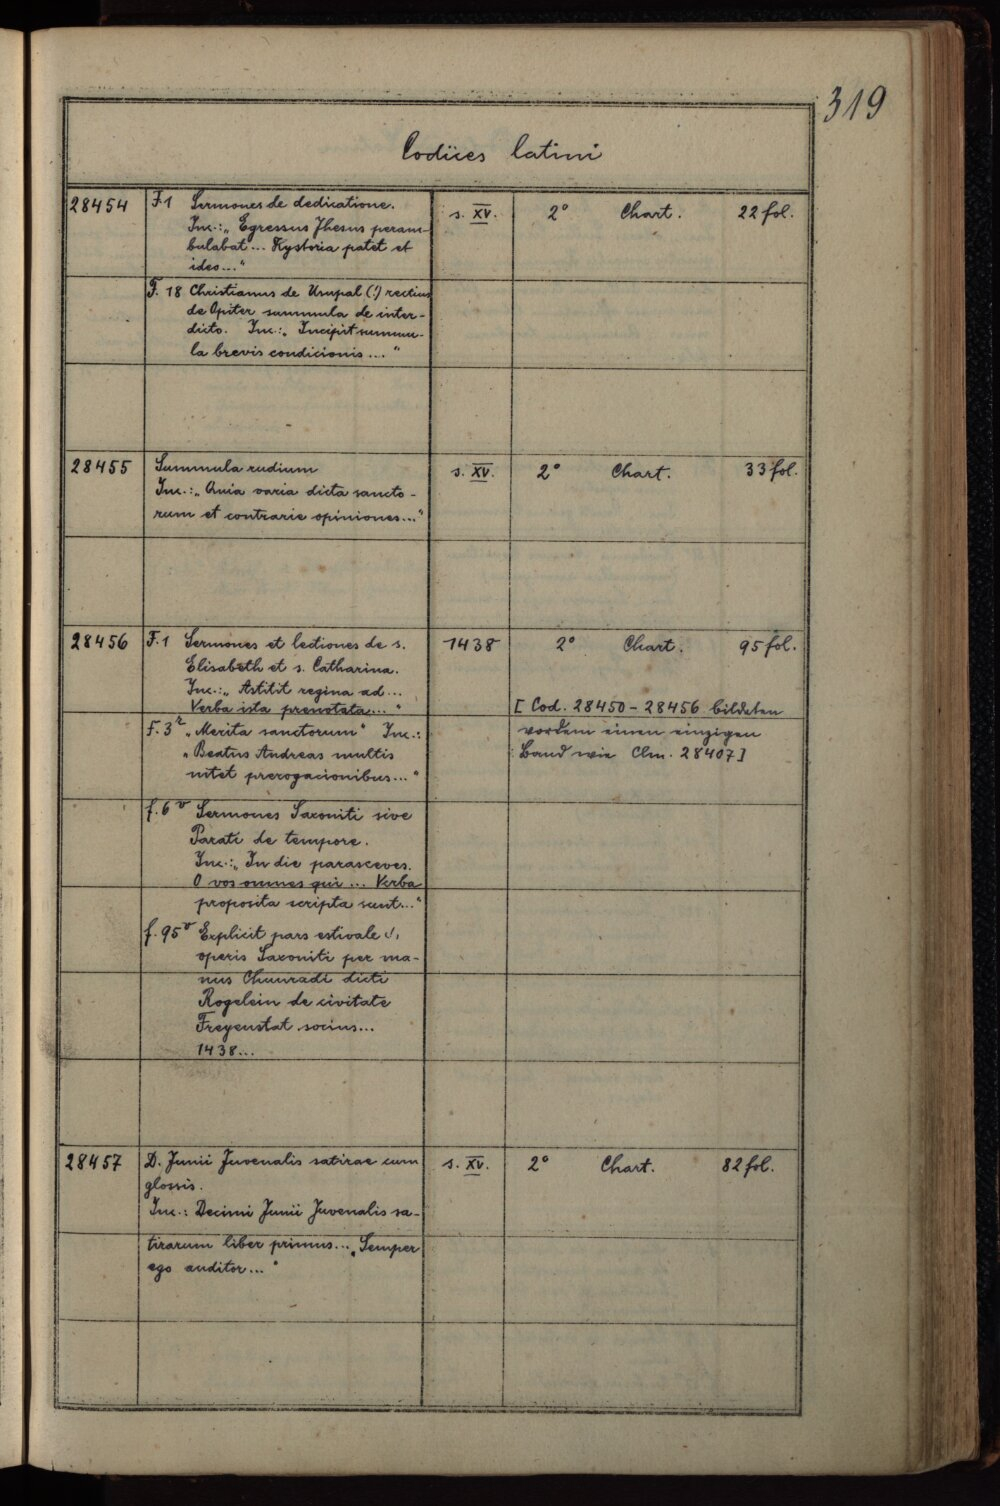 319
Codices latini
28454 F.1 Sermones de dedicatione. s. XV. 2° Chart. 22 fol.
Inc.: „Egressus Jhesus peram-
bulabat... Hystoria patet et
ideo..."
F. 18 Christianus de Usupal (!) rectius
de Opiter summula de inter-
dicto. Inc.: „Incipit summu-
la brevis condicionis...."
28455 Summula rudium s. XV. 2° Chart. 33 fol.
Inc.: „Quia varia dicta sancto-
rum et contrarie opiniones..."
28456 F.1 Sermones et lectiones de s. 1438 2° Chart. 95 fol.
Elisabeth et s. Catharina.
Inc.: „Astitit regina ad...
Verba ista prenotata..."
[Cod. 28450-28456 bildeten
vordem einen einzigen
Band wie Clm. 28407]
F. 3r „Merita sanctorum" Inc.:
„Beatus Andreas multis
nitet prerogacionibus..."
f. 6v Sermones Saxoniti sive
Parati de tempore.
Inc.: „In die parasceves.
O vos omnes qui... Verba
proposita scripta sunt..."
f. 95v Explicit pars estivale
operis Saxoniti per ma-
nus Chunradi dicti
Rogelein de civitate
Freyenstat socius...
1438...
28457 D. Junii Juvenalis satirae cum s. XV. 2° Chart. 82 fol.
glossis.
Inc.: Decimi Junii Juvenalis sa-
tirarum liber primus... „Semper
ego auditor..."